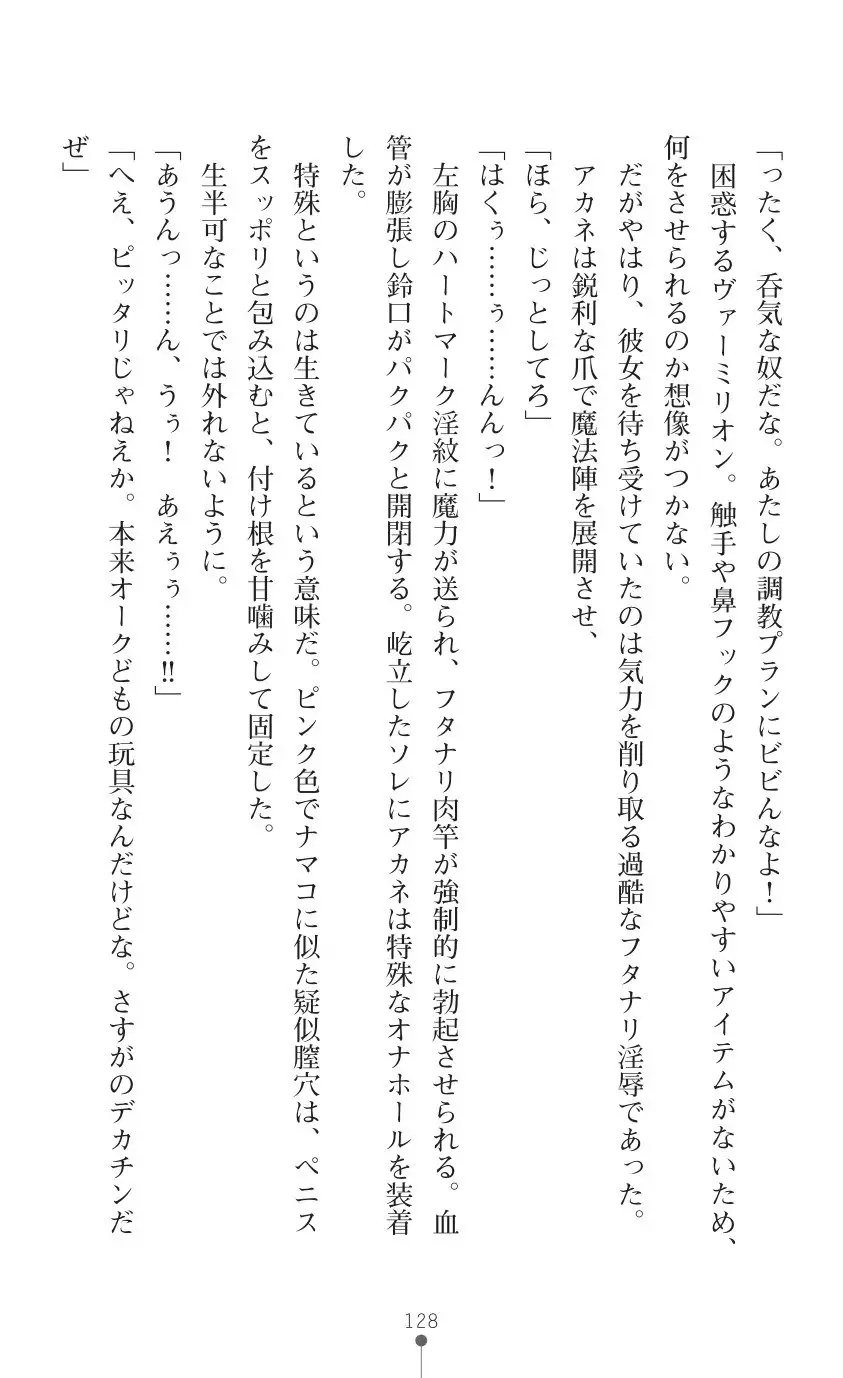 「ったく、呑気な奴だな。あたしの調教プランにビビんなよ！」
　困惑するヴァーミリオン。触手や鼻フックのようなわかりやすいアイテムがないため、
何をさせられるのか想像がつかない。
　だがやはり、彼女を待ち受けていたのは気力を削り取る過酷なフタナリ淫辱であった。
　アカネは鋭利な爪で魔法陣を展開させ、
「ほら、じっとしてろ」
「はくぅ……ぅ……んんっ！」
　左胸のハートマーク淫紋に魔力が送られ、フタナリ肉竿が強制的に勃起させられる。血
管が膨張し鈴口がパクパクと開閉する。屹立したソレにアカネは特殊なオナホールを装着
した。
　特殊というのは生きているという意味だ。ピンク色でナマコに似た疑似膣穴は、ペニス
をスッポリと包み込むと、付け根を甘噛みして固定した。
　生半可なことでは外れないように。
「あうんっ……ん、うぅ！　あえぅぅ……‼」
「へえ、ピッタリじゃねえか。本来オークどもの玩具なんだけどな。さすがのデカチンだ
ぜ」
128